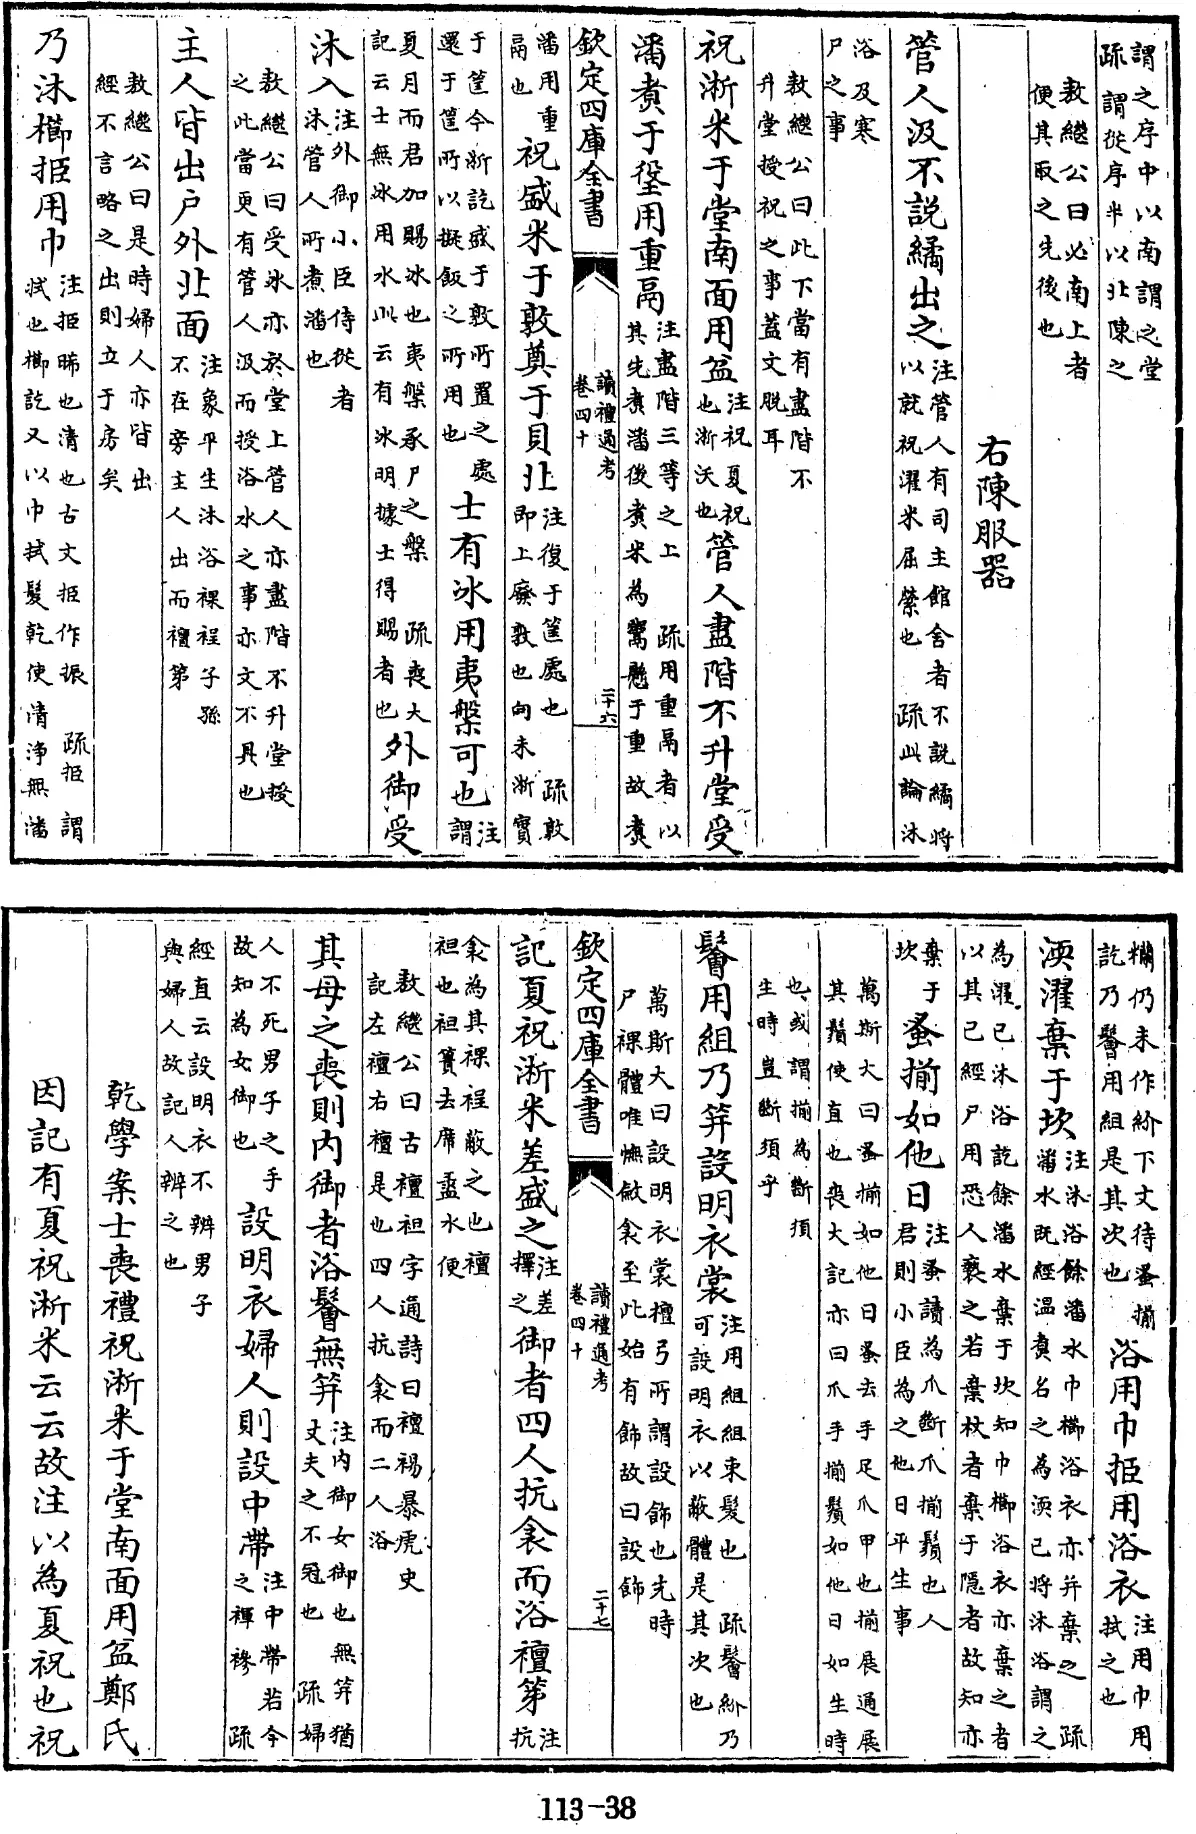 謂之序中以南謂之堂
疏謂從序半以北陳之
敖繼公曰必南上者
便其取之先後也
右陳服器
管人汲不説繘出之
注管人有司主館舍者不説繘將
以就祝濯米屈縈也　疏此論沐
浴及寒
尸之事
敖繼公曰此下當有盡階不
升堂授祝之事蓋文脱耳
祝淅米于堂南面用盆
注祝夏祝
也淅沃也
管人盡階不升堂受
潘煑于垼用重鬲
注盡階三等之上　疏用重鬲者以
其先煑潘後煑米為鬻懸于重故煑
欽定四庫全書
讀禮通考
卷四十
二十六
潘用重
鬲也
祝盛米于敦奠于貝北
注復于筐處也　疏敦
即上廢敦也向未淅實
于筐今淅訖盛于敦所置之處
還于筐所以擬飯之所用也
士有冰用夷槃可也
注
謂
夏月而君加賜冰也夷槃承尸之槃　疏喪大
記云士無冰用水此云有冰明據士得賜者也
外御受
沐入
注外御小臣侍從者
沐管人所煑潘也
敖繼公曰受冰亦於堂上管人亦盡階不升堂授
之此當更有管人汲而授浴水之事亦文不具也
主人皆出户外北面
注象平生沐浴裸裎子孫
不在旁主人出而襢第
敖繼公曰是時婦人亦皆出
經不言略之出則立于房矣
乃沐櫛挋用巾
注挋晞也清也古文挋作振　疏挋謂
拭也櫛訖又以巾拭髮乾使清淨無潘
糷仍未作紒下文待蚤揃
訖乃鬠用組是其次也
浴用巾挋用浴衣
注用巾用
拭之也
渜濯棄于坎
注沐浴餘潘水巾櫛浴衣亦并棄之　疏
潘水既經温煑名之為渜已將沐浴謂之
為濯已沐浴訖餘潘水棄于坎知巾櫛浴衣亦棄之者
以其已經尸用恐人褻之若棄杖者棄于隱者故知亦
棄于
坎
蚤揃如他日
注蚤讀為爪斷爪揃鬚也人
君則小臣為之他日平生事
萬斯大曰蚤揃如他日蚤去手足爪甲也揃展通展
其鬚使直也喪大記亦曰爪手揃鬚如他日如生時
也或謂揃為斷須
生時豈斷須乎
鬠用組乃笄設明衣裳
注用組組束髮也　疏鬠紒乃
可設明衣以蔽體是其次也
萬斯大曰設明衣裳檀弓所謂設飾也先時
尸裸體唯幠斂衾至此始有飾故曰設飾
欽定四庫全書
讀禮通考
卷四十
二十七
記夏祝淅米差盛之
注差
擇之
御者四人抗衾而浴襢第
注
抗
衾為其裸裎蔽之也襢
袒也袒簀去席盝水便
敖繼公曰古襢袒字通詩曰襢裼暴虎史
記左襢右襢是也四人抗衾而二人浴
其母之喪則内御者浴鬠無笄
注内御女御也無笄猶
丈夫之不冠也　疏婦
人不死男子之手
故知為女御也
設明衣婦人則設中帶
注中帶若今
之褌襂　疏
經直云設明衣不辨男子
與婦人故記人辨之也
乾學案士喪禮祝淅米于堂南面用盆鄭氏
因記有夏祝淅米云云故注以為夏祝也祝
113-38